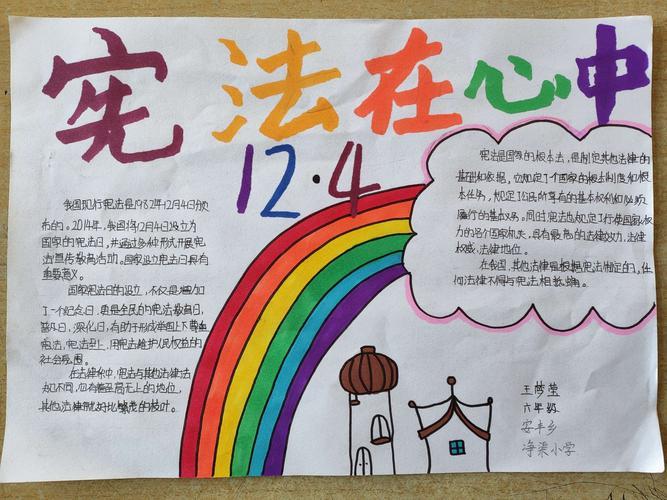 宪法在心中
12·4
我国现行宪法是1982年12月4日颁
布的。2014年，我国将12月4日设立为
国家的宪法日，并通过多种形式开展宪
法宣传教育活动。国家设立宪法日具有
重要意义。
国家宪法日的设立，不仅是增加
了一个纪念日，更是全民的宪法教育日、
普及日，深化日，有助于形成举国上下尊重
宪法、宪法至上、用宪法维护人民权益的
社会氛围。
在法律体中，宪法与其他法律法
不同，具有至高无上的地位，
其他法律就好比繁茂的枝叶。
宪法是国家的根本法，是制定其他法律的
基础和依据，它规定了国家的根本制度和根
本任务，规定了公民所享有的基本权利和必须
履行的基本义务。同时宪法也规定了行使国家权
力的各个国家机关，具有最高的法律效力、法律
权威、法律地位。
在我国，其他法律是根据宪法制定的，任
何法律不得与宪法相抵触。
王梦莹
六年级
安丰乡
净渠小学